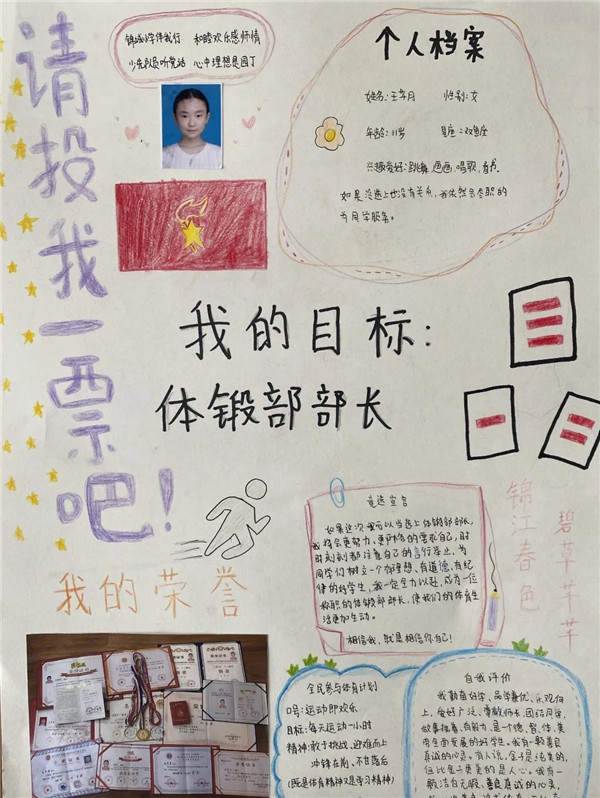 请投我一票吧!
锦城小学伴我行 和睦欢乐感师情
少先队员听党话 心中理想是园丁
个人档案
姓名:王芊月 性别:女
年龄:11岁 星座:双鱼座
兴趣爱好:跳舞、画画、唱歌、看书
如果没选上也没有关系,我依然会尽职的
为同学服务。
我的目标:
体锻部部长
三
一
二
我的荣誉
竞选宣言
如果这次我可以当选上体锻部部长,
我将会更努力、更严格的要求自己,时
时刻刻都注意自己的言行举止,为
同学们树立一个有理想、有道德、有纪
律的好学生,我一定全力以赴,成为一位
称职的体锻部部长,使我们的体育生
活更加生动。
相信我,就是相信你自己!
锦江春色
碧草芊芊
全民参与体育计划
口号:运动即欢乐
目标:每天运动一小时
精神:敢于挑战、迎难而上
冲锋在前、不甘落后
(既是体育精神又是学习精神)
自我评价
我勤奋好学、品学兼优、乐观向
上,爱好广泛、尊敬师长、团结同学,
做事执着、向前努力,是一个德、智、体、美
劳全面发展的好学生。我有一颗善良
真诚的心灵。有人说,金子是结果的,
但比金子更美的是人心。我有一
颗洁白无暇、善良真诚的心灵,